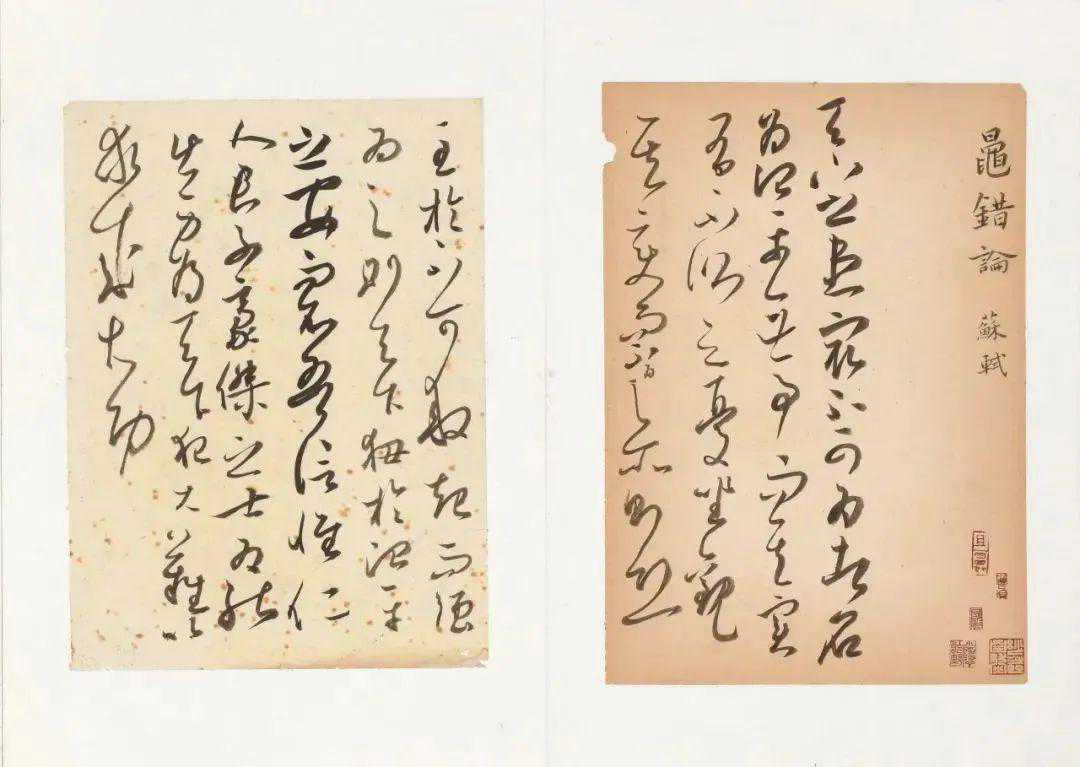 鼂錯論 蘇軾
天下之患最不可為者名
為治平無事而其實
有不測之憂坐觀
其變而不為之所則恐
至於不可救起而強
為之則天下狃於治平
之安而不吾信惟仁
人君子豪傑之士為能
出身為天下犯大難以
求成大功